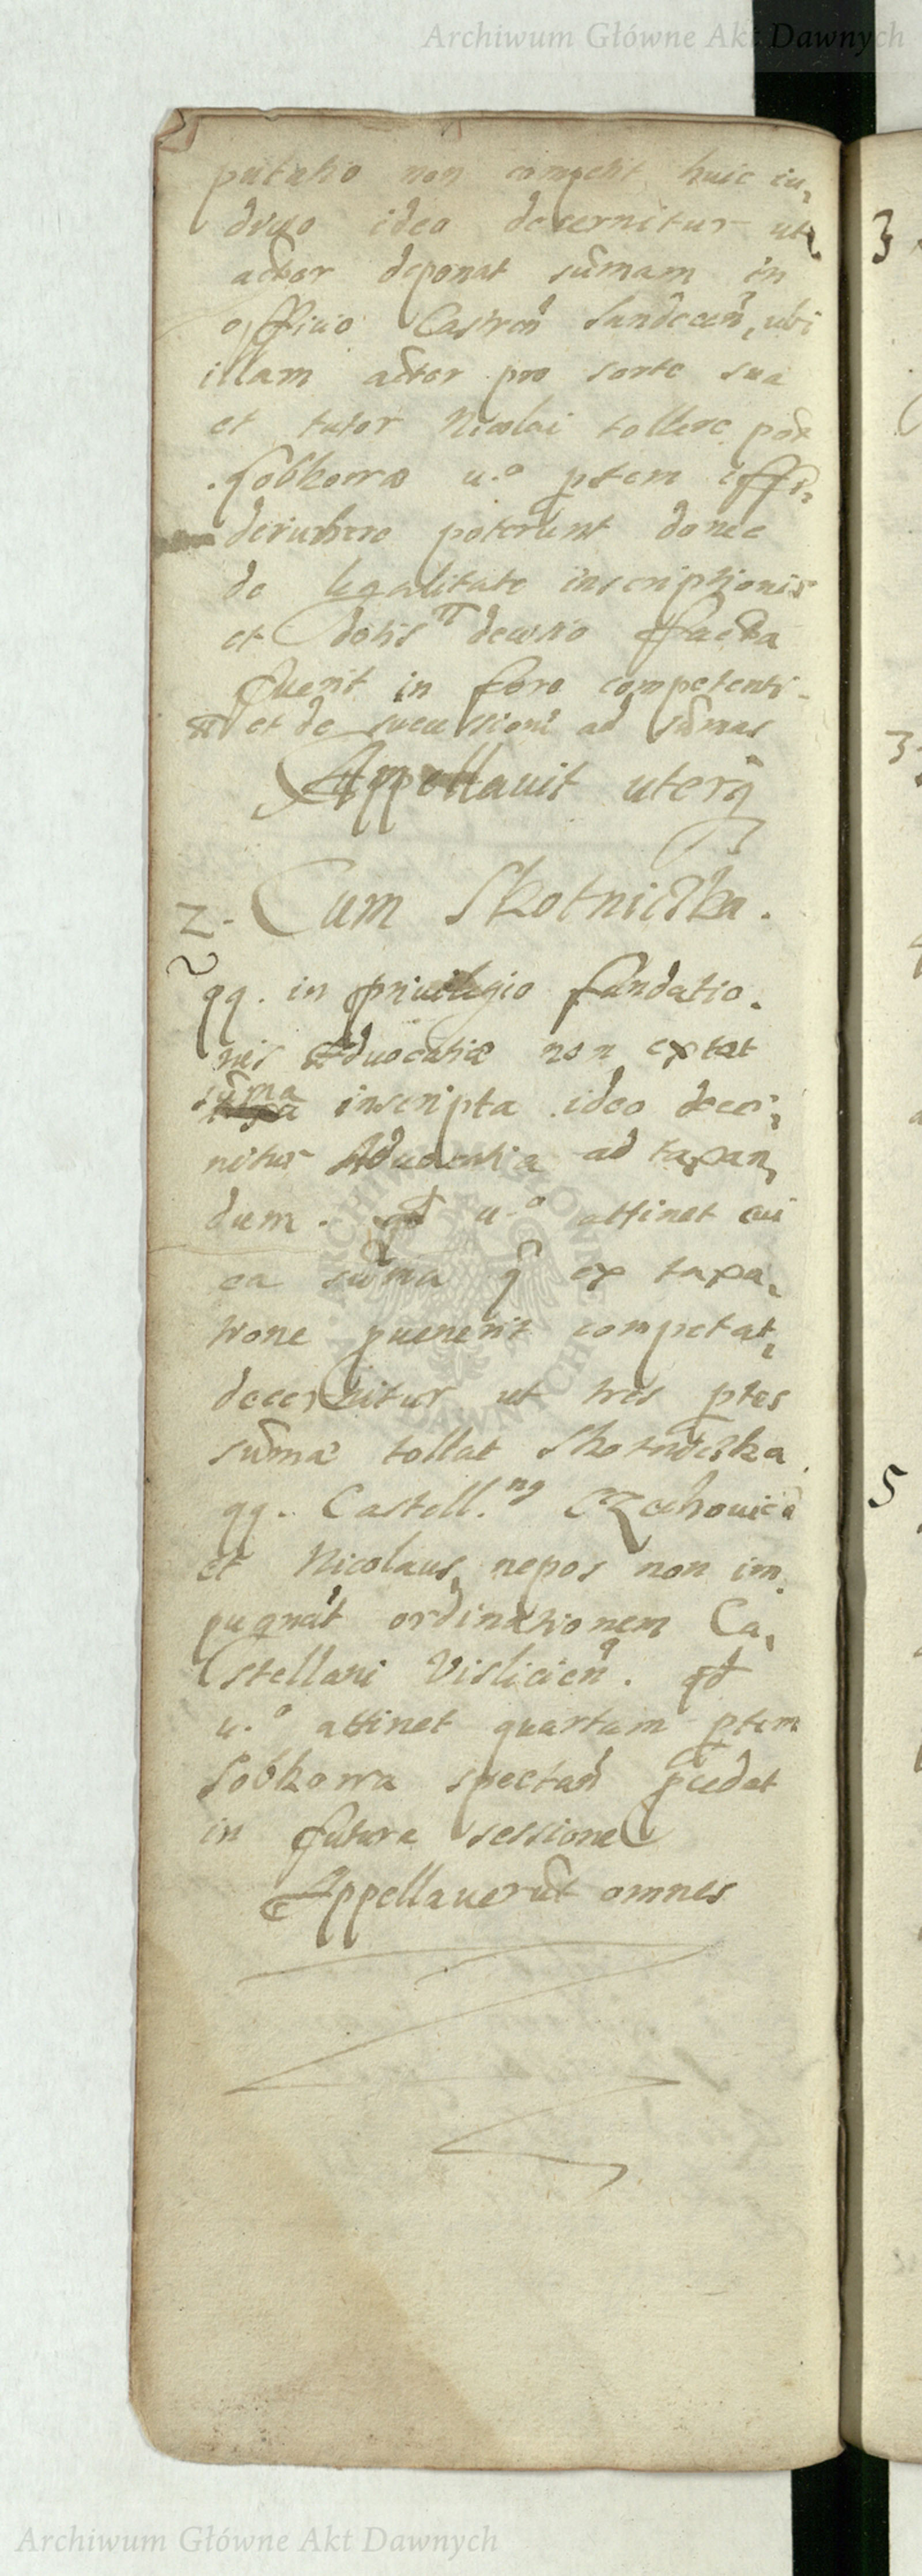 Archiwum Główne Akt Dawnych
putatio non competit huic iu,
dicio ideo decernitur ut
actor deponat sūmam in
officio Castren̄ Sandecen̄, ubi
illam actor pro sorte sua
et tutor Nicolai tollere pot
Sobkowa u.o ptem
poterunt donec
de legalitate inscriptionis
et dotis π decisio facta
fuerit in foro competenti
π et de successioni ad sūmas
Appellauit uterq
2. Cum Skotniczka.
qq. in priuilegio fundatio.
nis Aduocatiæ non extat
sūma
inscripta ideo decer,
nitur Aduocatia ad taxan,
dum. qd u.o attinet cui
ea sūma q ex taxa,
tione puenerit competat,
decernitur ut tres ptes
sūmæ tollat Skotniczka
qq. Castell.ng Czchouicē
et Nicolaus nepos non im
pugnāt ordinationem Ca,
stellani Visliciēn. qd
u.o attinet quartam ptem
Sobkowa spectan̄ pcedat
in futura sessione
Appellauerūt omnes
3
3
5
ARCHIWUM GŁÓWNE AKT DAWNYCH
Archiwum Główne Akt Dawnych